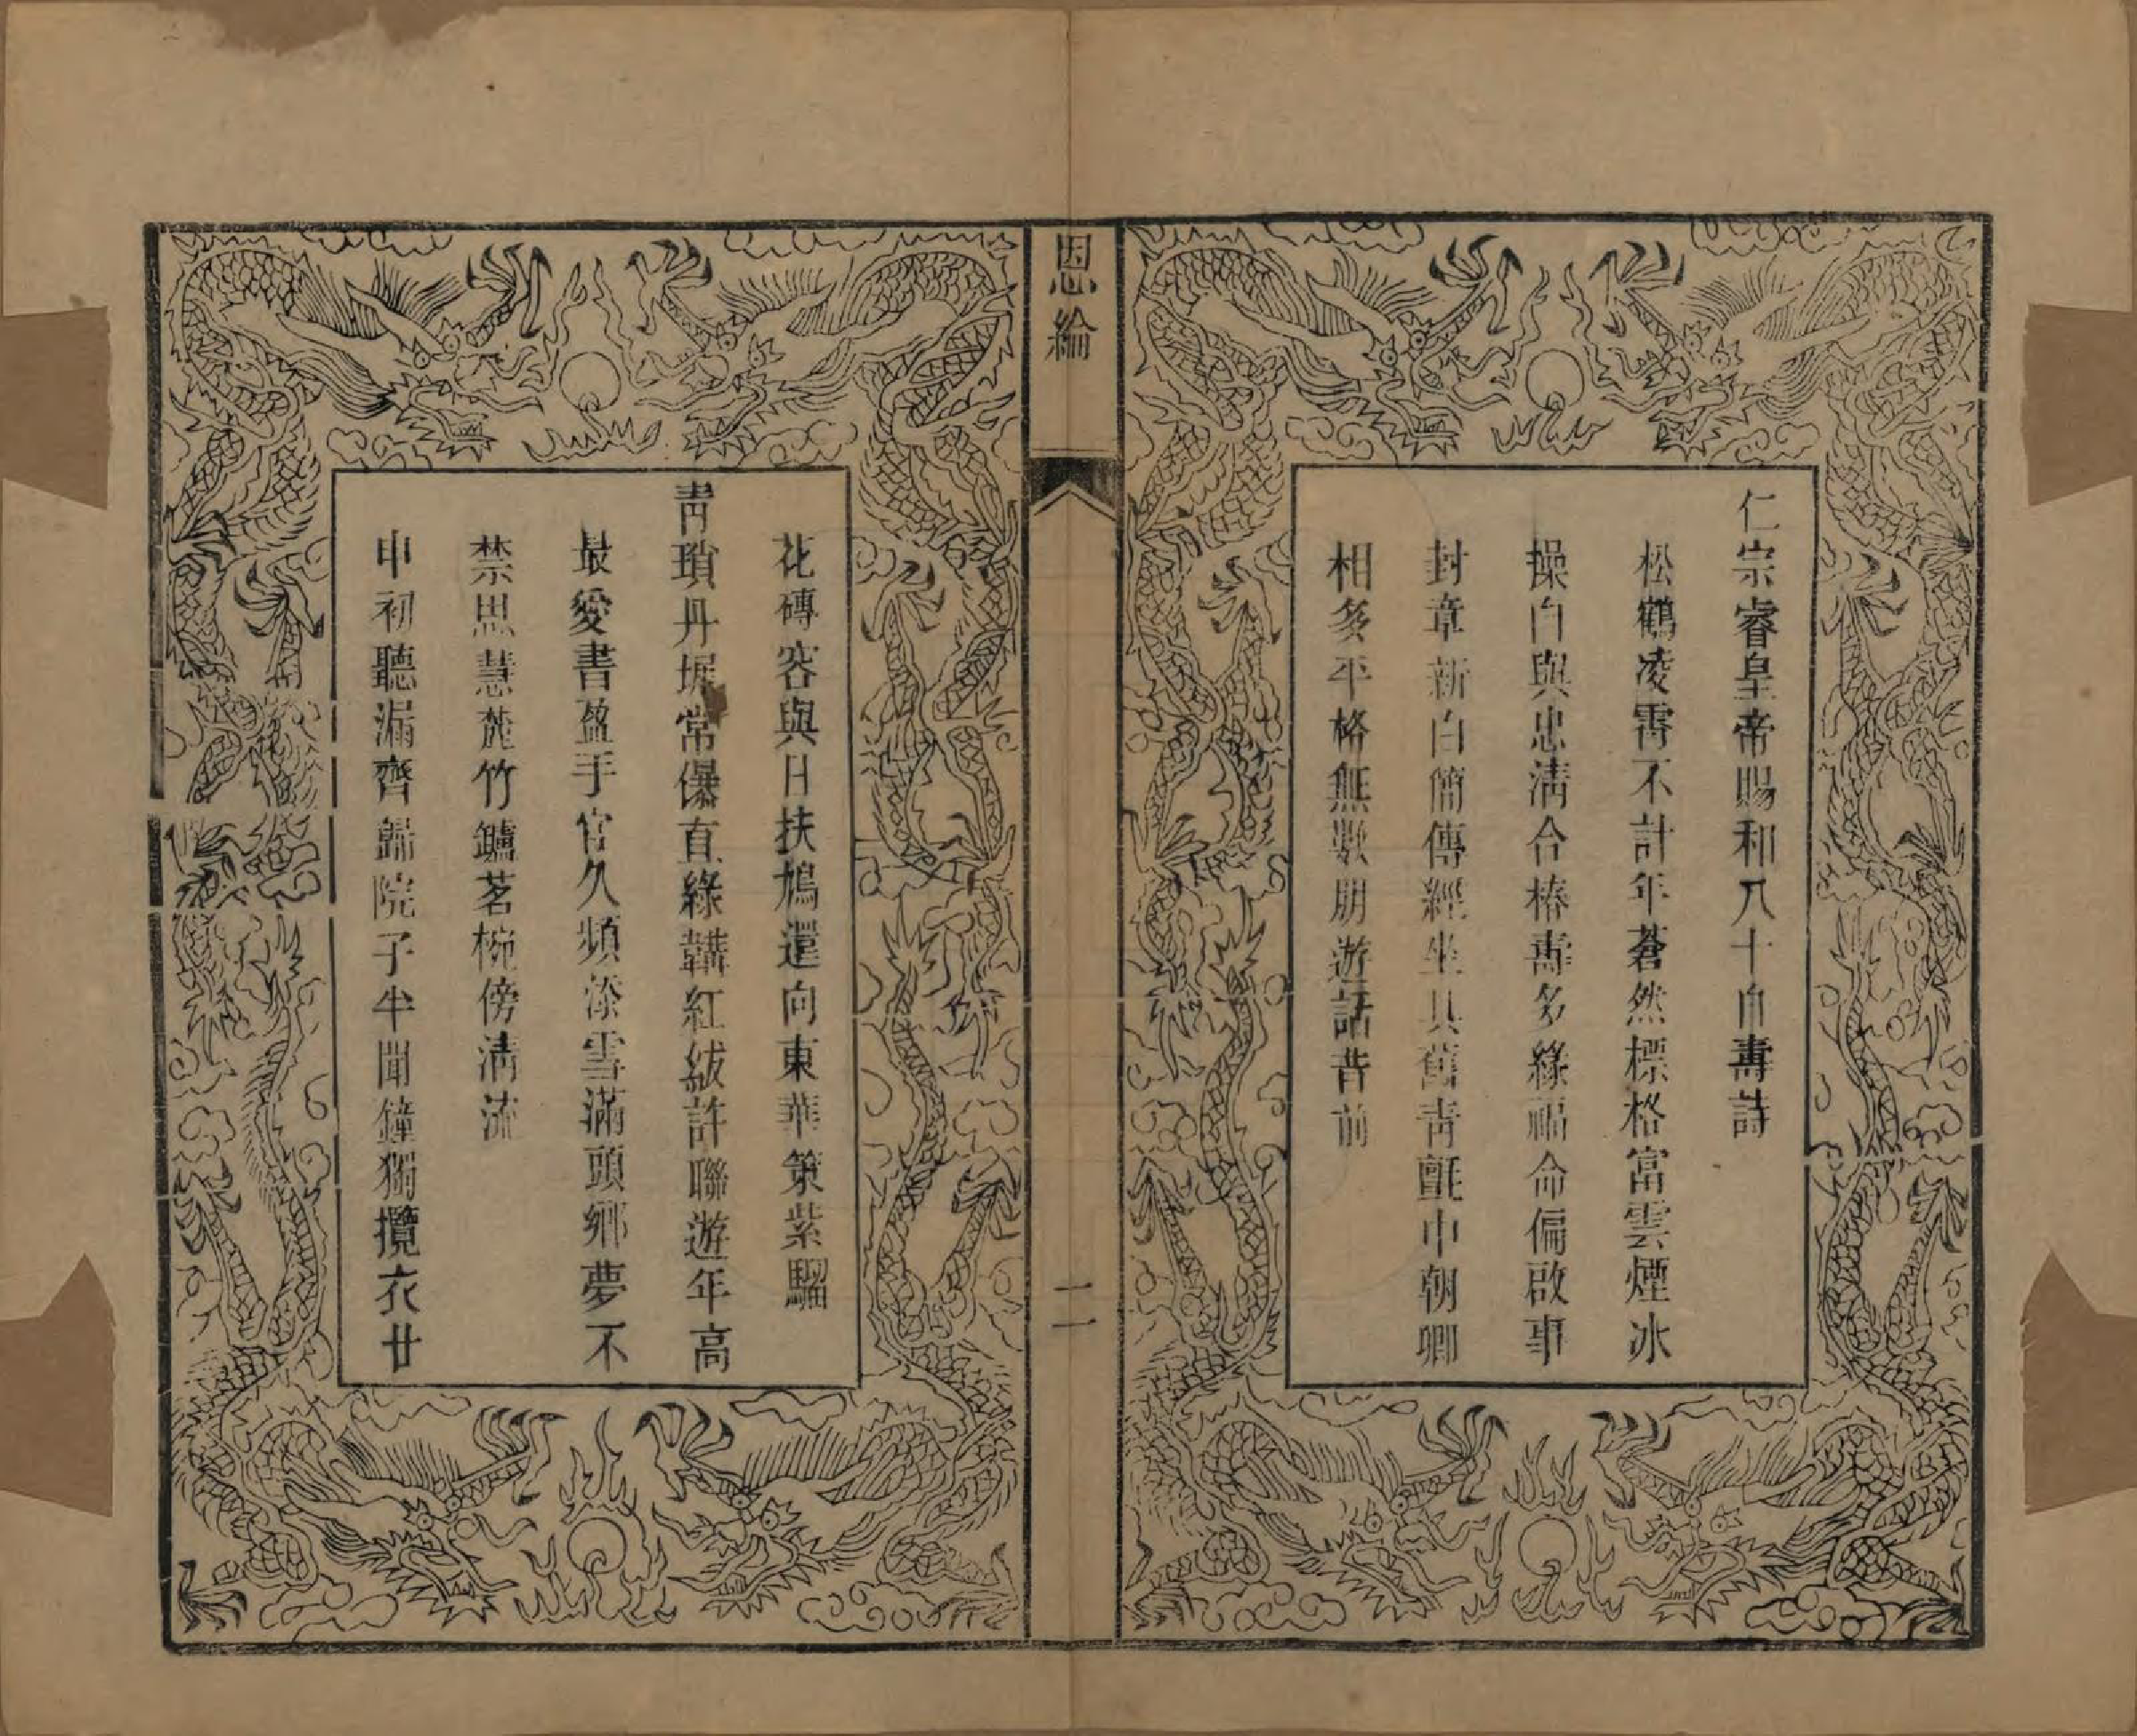 仁宗睿皇帝賜和八十自壽詩
松鶴凌霄不計年蒼然標格富雲煙冰
操白與忠淸合椿壽多緣福命偏啟事
封章新白簡傳經坐具舊靑氈中朝卿
相多平格無數朋遊話昔前
恩綸
二
花磚容與日扶鳩還向東華策紫騮
靑瑣丹墀常儤直綠韝紅紱許聯遊年高
最愛書盈手官久頻添雪滿頭鄉夢不
禁思慧麓竹鑪茗椀傍淸流
申初聽漏齊歸院子半聞鐘獨攬衣廿